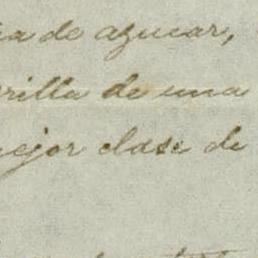 ia de azucar,
rilla de una
mejor clase de